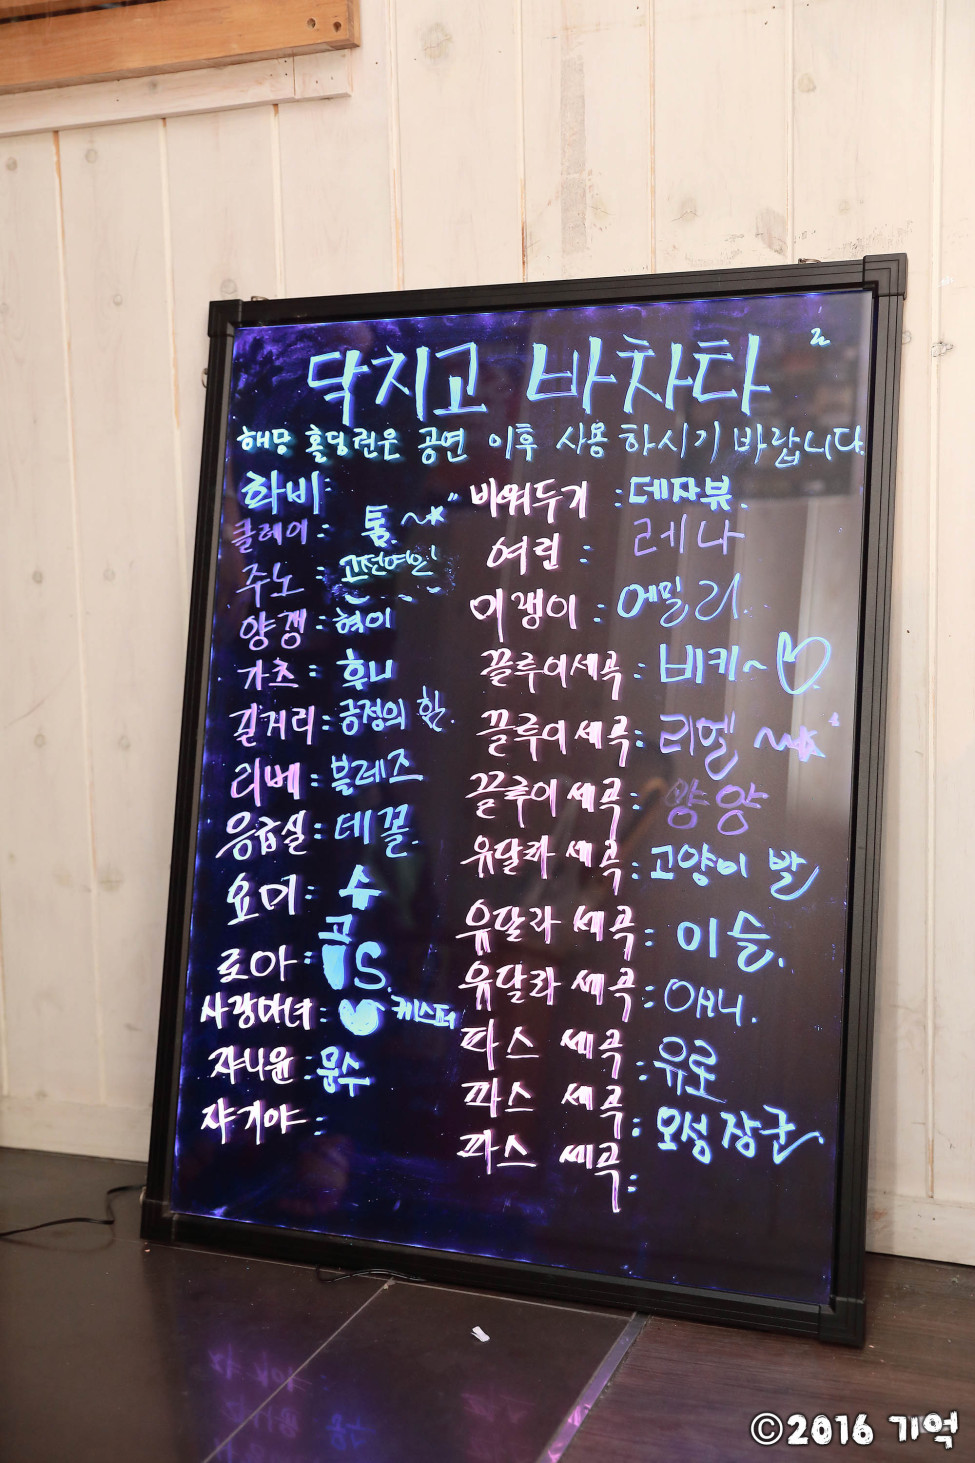 닥치고 바차타
해당 홀딩권은 공연 이후 사용하시기 바랍니다.
화비:
클레이: 톰.~
주노: 고전여인
양갱: 혁이
가츠: 후니
길거리: 긍정의 힘.
리베: 블레즈
응급실: 데꼴.
요미: 슈
로아: 곰S.
사랑마녀: 캐스퍼
쟈니윤: 뭉수
쟈기야:
바위두기: 데쟈뷰.
여린: 레나
이갱이: 에밀리.
끌루이세곡: 비키~♡.
끌루이세곡: 리멜~
끌루이세곡: 뱡양
유달라 세곡: 고양이 발
유달라 세곡: 이슬.
유달라 세곡: 애니.
파스 세곡: 유로
파스 세곡: 오성장군
파스 세곡:
©2016 기억